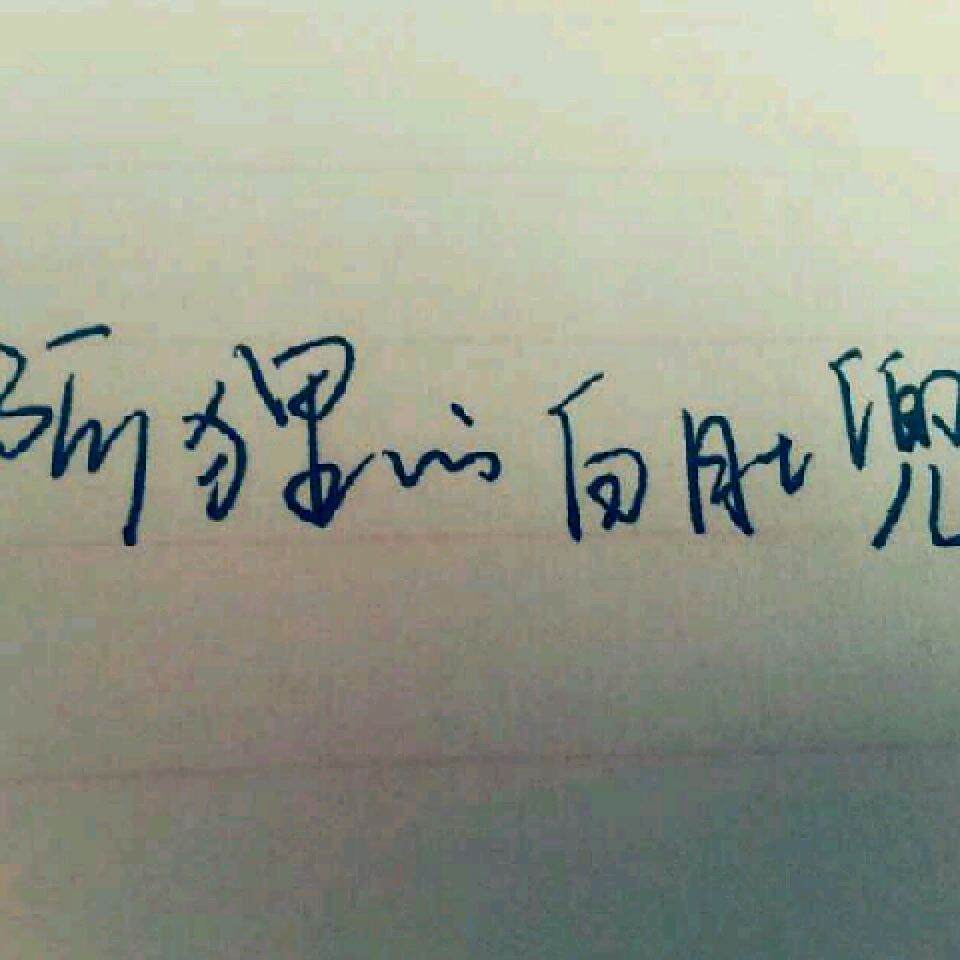 阿狸的白肚兜